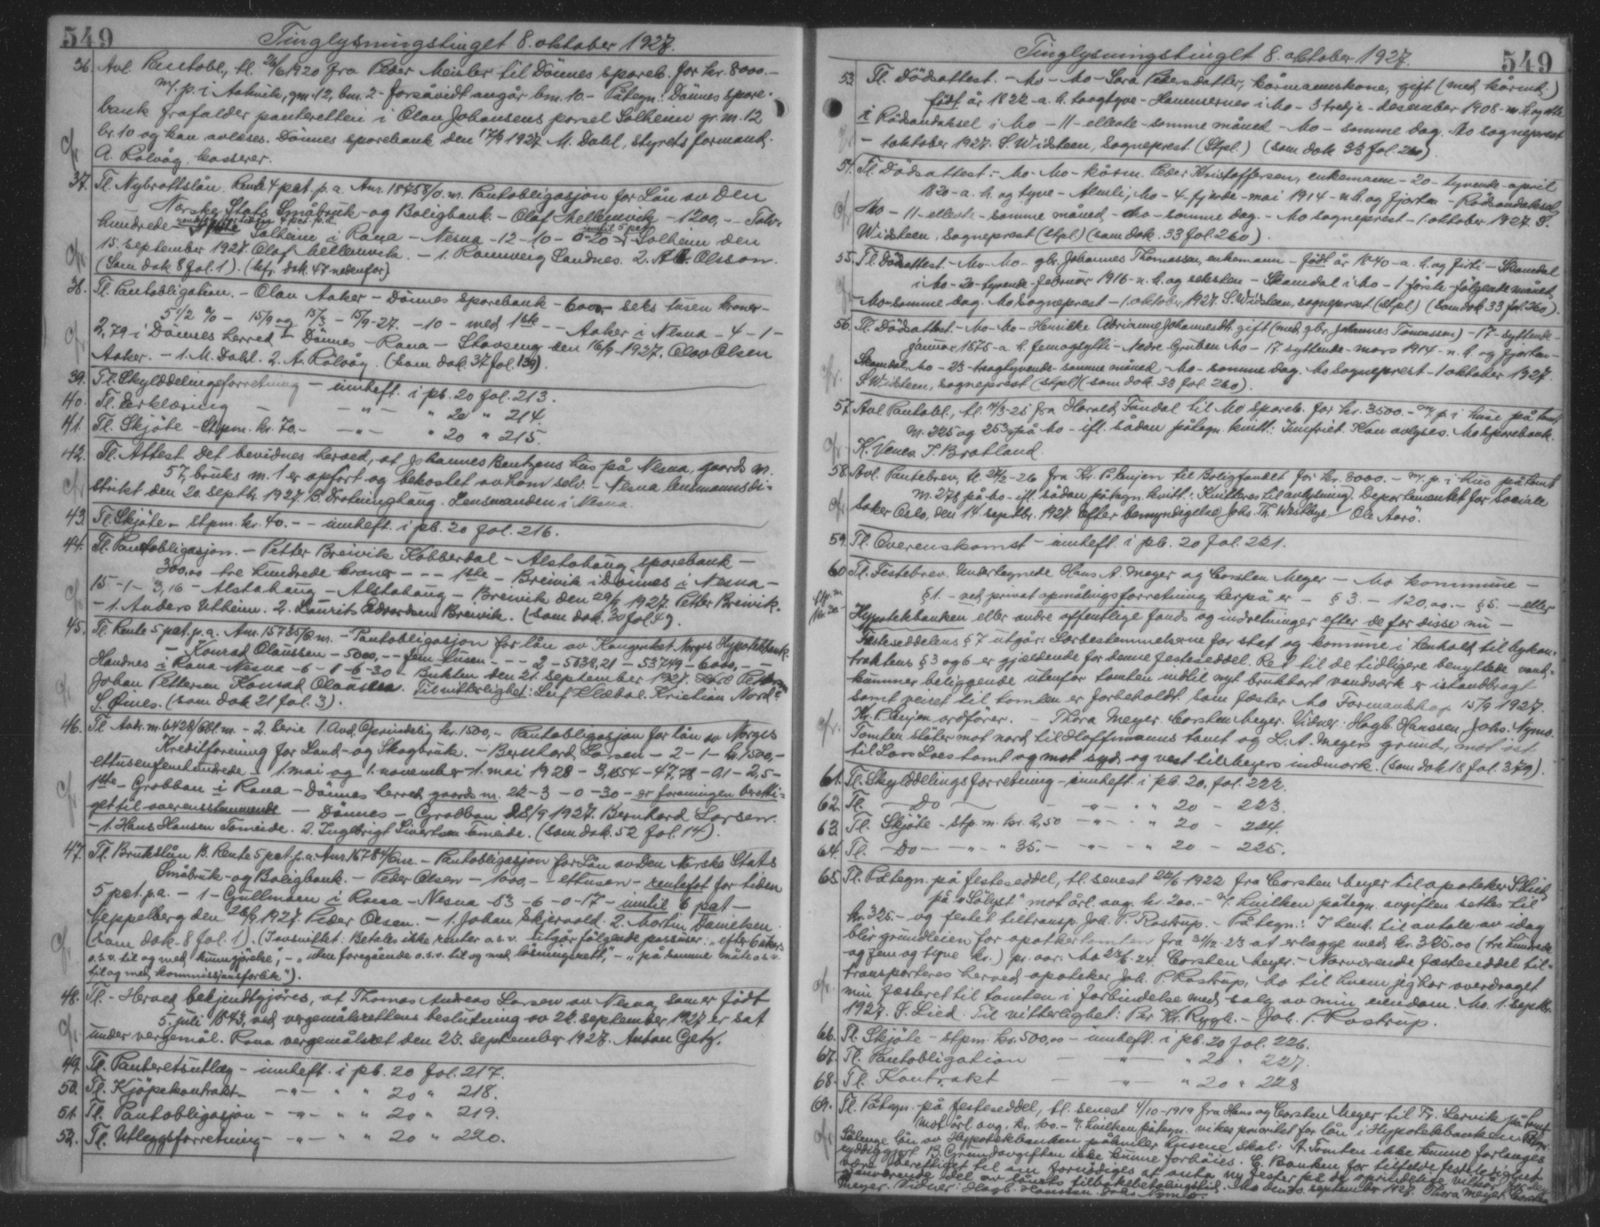 549
Tinglysningstinget 8. oktober 1927.
36. Avl. Pantobl., tl. 26/6 1920 fra Peder Meisler til Dönnes spareb. for kr. 8000.-
m/ p. i Aakvik, gm. 12, bm. 2 - forsåvidt angår bm. 10. - Påtegn: Dönnes spare-
bank frafalder panteretten i Olau Johansens parsel Solheim gr. m. 12
br. 10 og kan avleses. Dönnes sparebank den 17/9 1927. M. Dahl, styrets formand.
A. Rölvåg, kasserer.
37. Tl. Nybrottslån. Rente 4 pct. p. a. Anr. 18758/0. m. Pantobligasjon for Lån av Den
Norske Stats Småbruk- og Boligbank - Olaf Mellemvik - 1200,- - Tolv-
hundrede - Solheim i Rana - Nesna - 12-10-0-20 - Solheim den
15. september 1927. Olaf Mellemvik. - 1. Ronnveig Sandnes. 2. Olsson.
(Som dok. 8 fol. 1). (kfr. dok. 47 nedenfor)
38. Tl. Pantobligation. - Olav Aaker - Dönnes sparebank - 6000 - seks tusen kroner -
5 1/2 % - 15/9 og 15/3 - 15/9-27. - 10 - med 1ste - - Aaker i Nesna - 4 - 1 -
2,79 i Dönnes herred - Dönnes - Rana - Skovseng den 16/9-1927. Olav Olsen
Aaker. - 1. M. Dahl. 2. A. Rölvåg. (som dok. 37 fol. 139).
39. Tl. Skylddelingsforretning - innheft. i pb. 20 fol. 213.
40. Tl. Erklæring - -"- " 20 " 214.
41. Tl. Skjöte - Stpm. kr. 70.- -"- " 20 " 215.
42. Tl. Attest. Det bevidnes herved, at Johannes Bentzens hus på Nesna, gaards m.
57, bruks m. 1 er opfört og bekostet av ham selv. - Nesna lensmannsdi-
strikt den 20 septbr. 1927. B. Drotninghaug. Lensmanden i Nesna.
43. Tl. Skjöte - stpm. kr. 40. - - innheft. i pb. 20 fol. 216.
44. Tl. Pantobligasjon. - Petter Breivik Kobberdal - Alstahaug sparebank -
300,00 tre hundrede kroner - - - 1ste - Breivik i Dönnes i Nesna -
15 - 1 - 3,16 - Alstahaug - Alstahaug - Breivik den 29/8 1927. Petter Breivik.
- 1. Anders Utheim. 2. Laurits Edvardsen Breivik. (som dok. 30 fol. 49.
45. Tl. Rente 5 pct. p. a. Anr. 15735/0. m. - Pantobligasjon for lån av Kongeriket Norges Hypotekbank.
- Konrad Olaussen - 5000,- - fem tusen - - - 2 - 5638,21 - 53749 - 6000,- -
Handnes i Rana - Nesna - 6 - 1 - 6 - 30 - Bukten den 21. september 1927.
Johan Pettersen Konrad Olaussen. Til vitterlighet: Leif Klæboe. Kristian Nord-
S. Öines. (som dok 21 fol. 3).
46. Tl. Aakr. m. 6428/Obl. m. - 2. Serie 1. Avd. Oprindelig kr. 1500,- Pantobligasjon for lån av Norges
Kreditforening for Land- og Skogbruk. - Bernhard Larsen - 2 - 1 - kr. 1500,-
ettusenfemhundrede - 1. mai og 1. november - 1. mai 1928 - 3,1554 - 47,78 - 01 - 2,5 -
1ste - Grobban i Rana - Dönnes herred gaards m. 22 - 3 - 0 - 30 - er foreningen beretti-
get til overensstemmende - Dönnes - Grobban 23/9 1927. Bernhard Larsen.
- 1. Hans Hansen Tomeide. 2. Ingebrigt Sivertsen Tomeide. (som dok. 52 fol. 14).
47. Tl. Brukslån B. Rente 5 pct. p. a. Anr. 15784/0. m. - Pantobligasjon for Lån av Den Norske Stats
Småbruk- og Boligbank. - Peder Olsen - 1000,- - ettusen - rentefot for tiden
5 pct. p. a. - 1 - Gullmoen i Rana - Nesna - 53 - 6 - 0 - 17 - inntil 6 pct -
Heppelberg den 28/9 1927. Peder Olsen. - 1. Johan Skjervold. 2. Martin Danielsen
(som dok. 8 fol. 1). (Innskiftet: Betales ikke renter o. s. v. utgår fölgende passuser: "efter 6 ukers
o. s. v. til og med kunngjörelse, - "uten foregående o. s. v. til og med lösningsrett, - "på samme måte o. s. v.
til og med kommissionsforlik").
48. Tl. - Herved bekjendtgjöres, at Thomas Andreas Larsen av Nesna, som er födt
5. juli 1843, ved vergemålsrettens beslutning av 22. september 1927 er sat
under vergemål. Rana vergemålsret den 23. september 1927. Anton Getz.
49. Tl. Panteretsutlæg - innheft. i pb. 20 fol. 217.
50. Tl. Kjöpekontrakt - -"- " " 20 " 218.
51. Tl. Pantobligasjon - -"- " " 20 " 219.
52. Tl. Utleggsforretning - -"- " " 20 " 220.
Tinglysningstinget 8. oktober 1927.
549
53. Tl. Dödsattest. - Mo - Mo - Sara Pedersdatter, kårmannskone, gift (med kårm.)
födt år 1822 - a. h. toogtyve - Hammernes i Mo - 3 tredje - desember 1908 - n. h. og otte
i Rödsandaksel i Mo - 11 - ellevte - samme måned - Mo - samme dag. Mo sogneprest
- 1 oktober 1927. S. Widsteen, sogneprest (Stpl.) (som dok. 33 fol. 260).
54. Tl. Dödsattest: - Mo - Mo - kårm. Peder Kristoffersen, enkemann - 20 - tyvende april
1820 - a. h. og tyve - Almli, Mo - 4 - fjerde - mai 1914 - n. h. og fjorten - Rödsandaksel
Mo - 11 - ellevte - samme måned - Mo - samme dag. - Mo sogneprest - 1 oktober 1927. S.
Widsteen, sogneprest (stpl) (som dok. 33 fol. 260).
55. Tl. Dödsattest. - Mo - Mo - gbr. Johannes Thomassen, enkemann - födt år 1840 - a. h. og firti - Skamdal
i Mo - 20 - tyvende - februar 1916 - n. h. og seksten - Skamdal i Mo - 1 förste - fölgende måned,
Mo - samme dag. Mo sogneprest - 1. oktober 1927. S. Widsteen, sogneprest (stpl) (som dok. 33 fol. 260).
56. Tl. Dödsattest. - Mo - Mo - Henrikke Adrianna Johannesdt. gift (med gbr. Johannes Tomassen) - 17 - syttende -
januar 1875 - a. h. femogsytti - Nedre Gruben Mo - 17 syttende - mars 1914 - n. h. og fjorten -
Skamdal, Mo - 23 - treogtyvende - samme måned - Mo - samme dag. Mo sogneprest - 1 oktober 1927.
S. Widsteen, sogneprest (stpl) (som dok. 33 fol. 260).
57. Avl. Pantobl., tl. 11/3-25 fra Harald Tandal til Mo spareb. for kr. 3500. - m/ p. i huse på tomt
m. 225 og 253 på Mo - ifl. sådan påtegn. kvitt: Innfriet. Kan avlyses. Mo Sparebank.
K. Venes P. Bratland.
58. Avl. Pantebrev, tl. 24/2-26 fra Kr. P. Lenjen til Boligfondet for kr. 8000. - m/ p. i hus på tomt
m. 278 på Mo - ifl. sådan påtegn. kvitt: Kvitteres til avlysning. Departementet for Sociale
saker Oslo, den 14 septbr. 1927. Efter bemyndigelse Johs. Th. Westbye. Ole Aarö.
59. Tl. Overenskomst - innheft. i pb. 20 fol. 221.
60. Tl. Festebrev. Undertegnede Hans A. Meyer og Corsten Meyer - Mo kommune -
§ 1. - ved privat opmålingsforretning herpå er - § 3. - 120,00. - § 5. - eller
Hypotekbanken eller andre offentlige fonds og indretninger efter de for disse nu -
Festeseddelens § 7 utgår. Særbestemmelserne for stat og kommune i Henhold til bykon-
traktens § 3 og 6 er gjeldende for denne festeseddel. Ret til de tidligere benyttede vand-
kummer beliggende utenfor tomten indtil nyt brukbart vandverk er istandbragt
samt veiret til tomten er forbeholdt som fæster. Mo Formannskap 15/9 1927.
Kr. P. Lenjen ordförer. - Thora Meyer. Corsten Meyer. Vidner: Hagb. Hanssen. Johs. Nyme.
Tomten stöter mot nord til Hoffmanns tomt og L. A. Meyers grund, mot öst
til Lars Loes tomt og mot syd og vest til Meyers indmark. (som dok. 18 fol. 379).
61. Tl. Skylddelingsforretning - innheft. i pb. 20, fol. 222.
62. Tl. - Do - -"- " " 20 - 223.
63. Tl. Skjöte - stp. m. kr. 2,50 -"- " " 20 - 224.
64. Tl. - Do - -"- " 35.- -"- " " 20 - 225.
65. Tl. Påtegn. på festeseddel, tl. senest 22/6 1922 fra Corsten Meyer til apoteker S. Lied
på "Sölyst" mot årl. avg. kr. 200.- v. hvilken påtegn. avgiften settes til
kr. 325.- og festet til transp. Joh. P. Rostrup. - Påtegn.: I henh. til avtale av idag
blir grundleien for apotekertomten fra 31/12 23 at erlægge med kr. 325,00 (tre hundrede
og fem og tyve kr.) pr. aar. Mo 23/6-24. Corsten Meyer. - Nærværende festeseddel til-
transporteres herved apoteker Joh. P. Rostrup, Mo til hvem jeg har overdraget
min fæsteret til tomten i forbindelse med salg av min eiendom. Mo 1. septbr.
1927. S. Lied. Til vitterlighet: Per Kr. Rygh. - Joh. P. Rostrup.
66. Tl. Skjöte - stpm. kr. 500,00 - innheft. i pb. 20 fol. 226.
67. Tl. Pantobligation - -"- " 20 " 227.
68. Tl. Kontrakt - -"- " 20 " 228
69. Tl. Påtegn. på festeseddel, tl. senest 4/10-1919 fra Hans og Corsten Meyer til Fr. Lervik på tomt
mot årl. avg. kr. 60.- v. hvilken påtegn. vikes prioritet for lån i Hypotekbanken
Sålenge lån av Hypotekbanken påhviler husene skal: A. Tomten ikke kunne forlanges
ryddiggjort. B. Grundavgiften ikke kunne forhöies. C. Banken for tilfelde
være berettiget til om fornödiges at anta ny fester på de oprindelige vilkår
gjenværende del av lånets tilbakebetalingstid. Mo den 20. september 1927. Thora Meyer. Corsten
Meyer. Vidner: Hagb. Hanssen. Johs. Nyme.